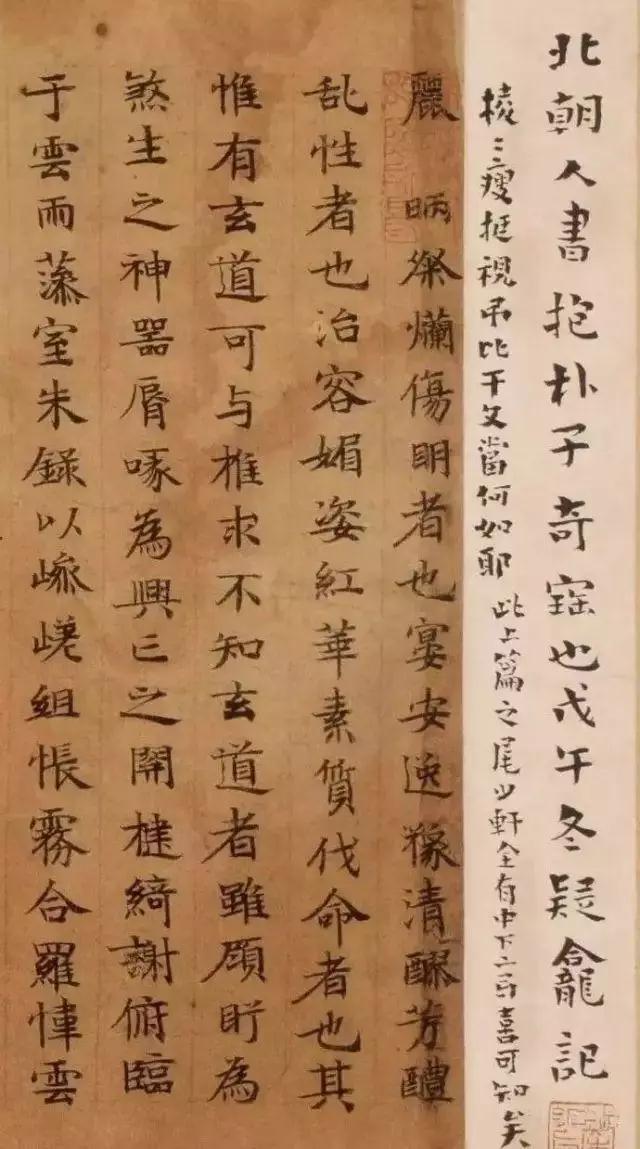 北朝人書抱朴子奇寚也戊午冬疑龕記
棱〻瘦挺視弔比干文當何如耶 此上篇之尾少軒全有中下二 喜可知矣
麗 昞粲爛傷明者也宴安逸豫清醪芳醴
乱性者也治容媚姿紅華素質伐命者也其
惟有玄道可与推求不知玄道者雖顧眄為
煞生之神器脣啄為興亡之開楗綺謝俯臨
于雲雨藻室朱錄以嵾嵯組帳霧合羅幃雲